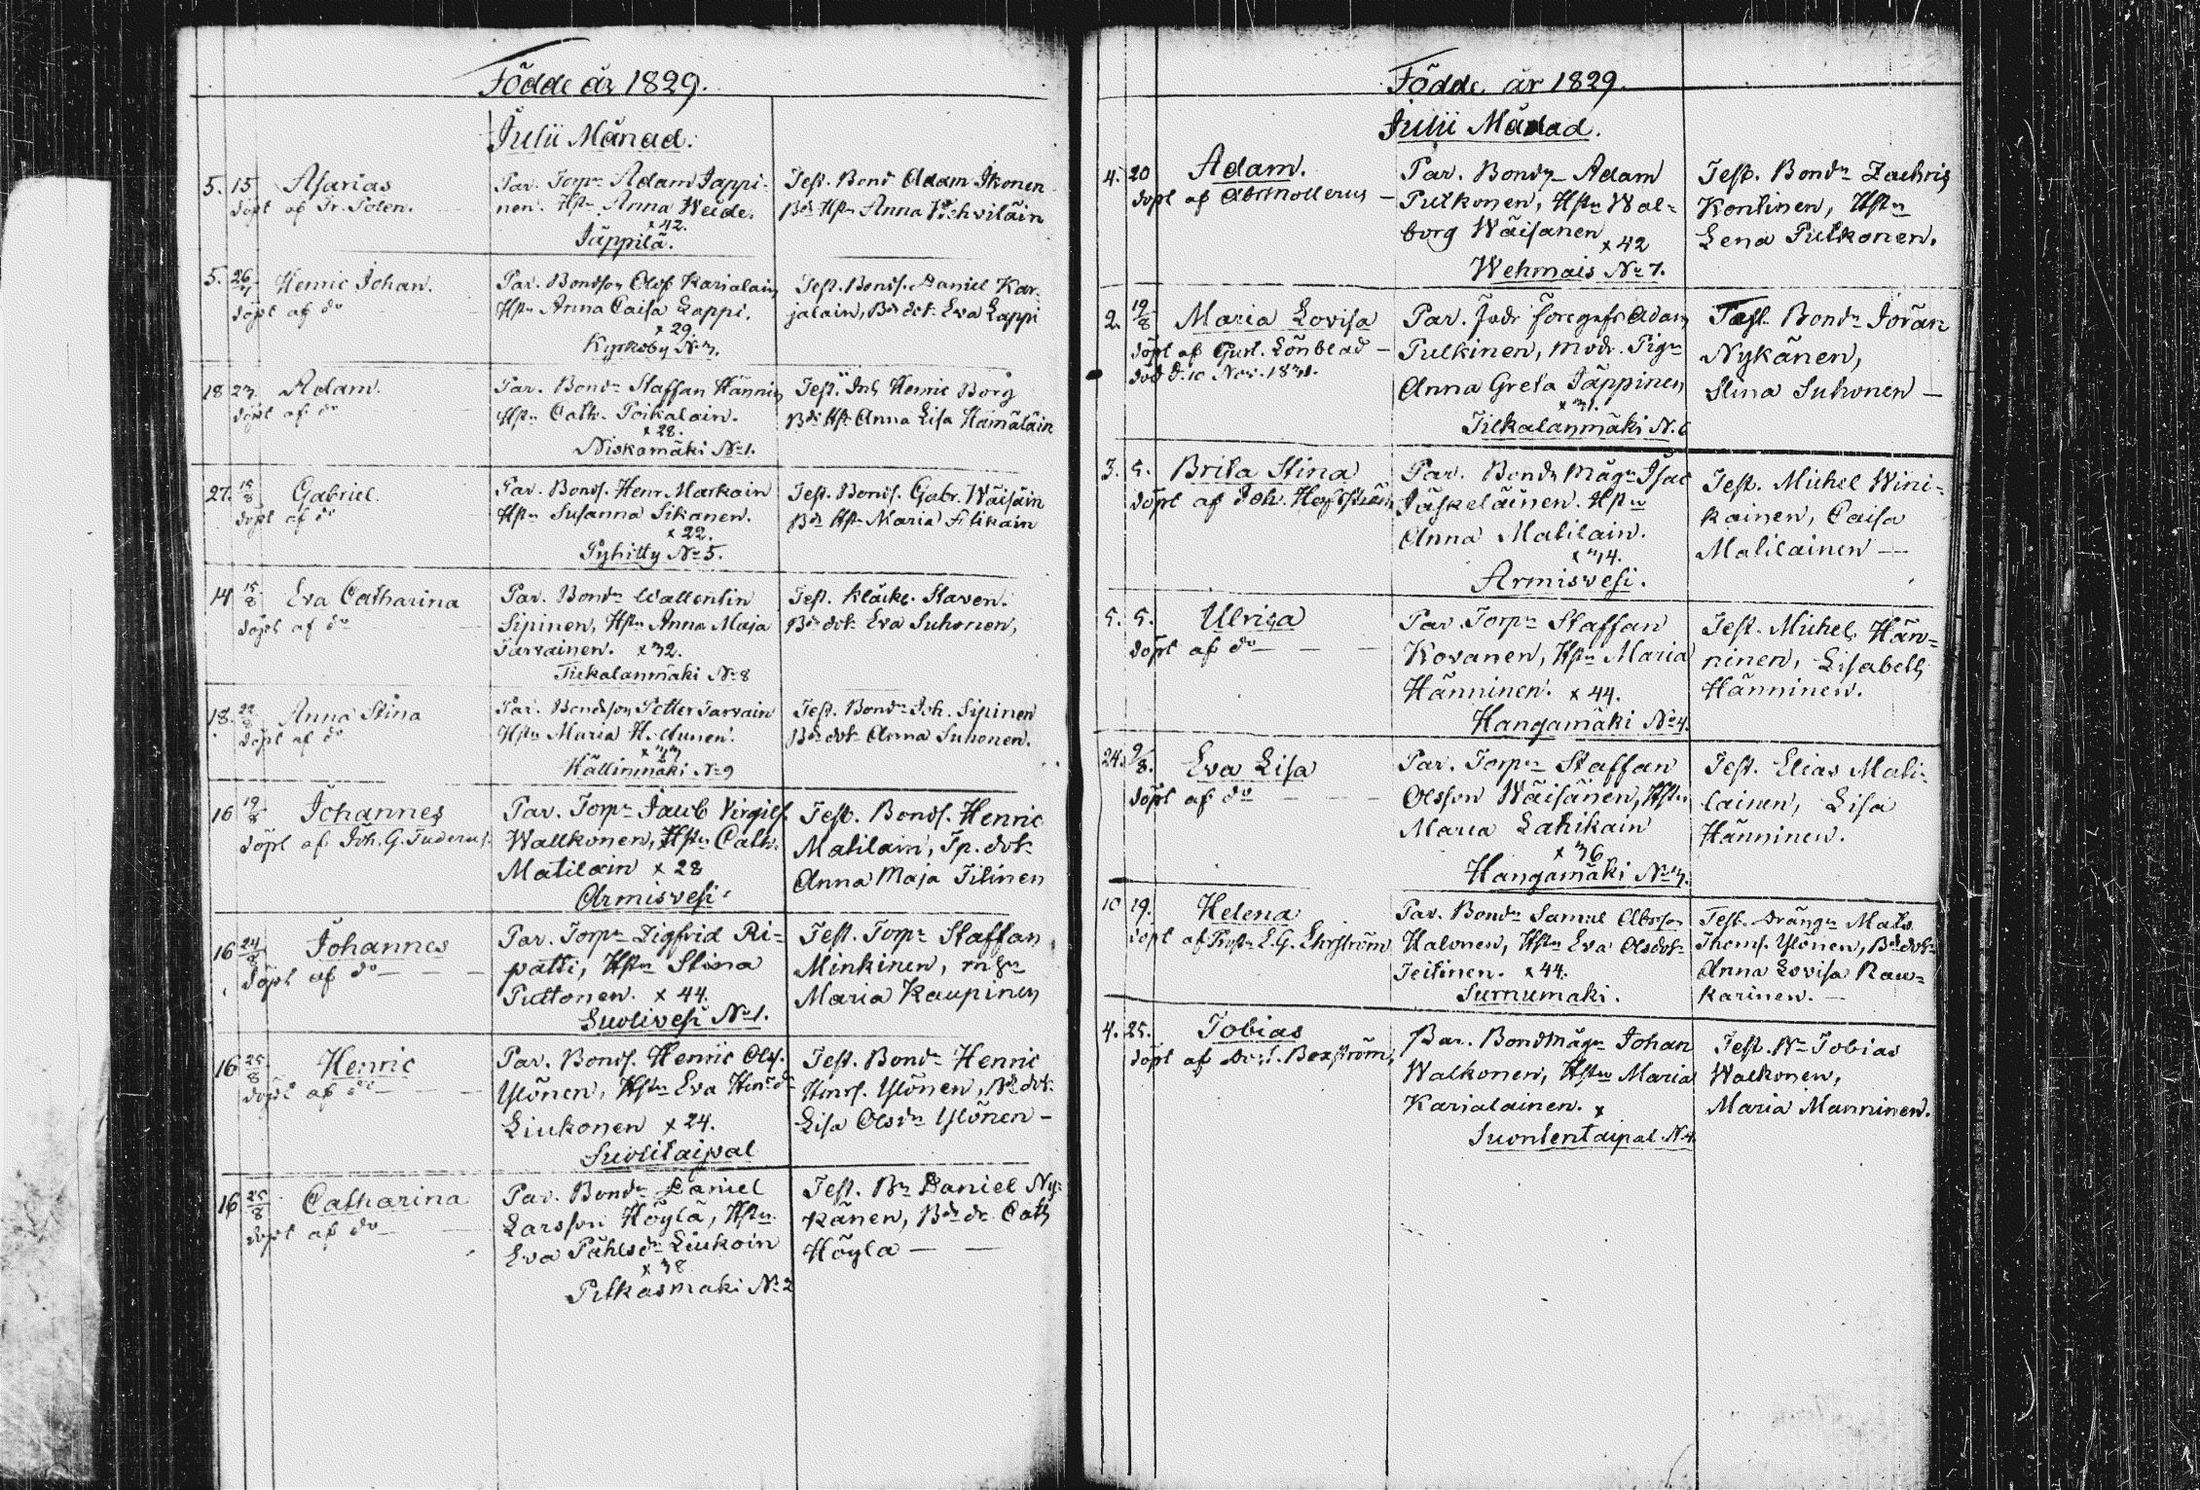 Födde år 1829.
Julii Månad.
5. 15 Asarias
döpt af Fr. Polen.
Par. Torpn Adam Jäppi-
nen. Hstn Anna Weide.
x 42.
Jäppilä.
Test. Bond Adam Ikonen
Bd Hstn Anna Wehviläin
5. 26/7 Henric Johan.
döpt af do
Par. Bondson Olof Karialain
Hstn Anna Caisa Lappi.
x 29.
Kyrkoby No 3.
Test. Bonds. Daniel Kar-
jalain, Bd dot. Eva Lappi
18 23 Adam.
döpt af do
Par. Bondn Staffan Hännin
Hstn Cath. Poikalain.
x 28.
Niskamäki No 1.
Test. Inh Henric Borg
Bd Hst Anna Lisa Hämäläin
27. 15/8 Gabriel
döpt af do
Par. Bonds. Henr Markain
Hstn Susanna Sikanen.
x 22.
Pyhitty No 5.
Test. Bonds. Gabr. Wäisäin
Bd Hstn Maria
14 15/8 Eva Catharina
döpt af do
Par. Bondn Wallentin
Sipinen, Hstn Anna Maja
Tarvainen. x 32.
Tiikalanmäki No 8
Test. Klåck. Staven.
Bd dot. Eva Suhonen,
18. 22/8 Anna Stina
döpt af do
Par. Bondson Petter Tarvain
Hstn Maria
x 33
Hällinmäki No 9
Test. Bondn Joh. Sipinen
Bd dot. Anna Suhonen.
16 19/8 Johannes
döpt af Joh. G. Tuderus.
Par. Torpn Jacob Virgils.
Wallkonen, Hstn Cath.
Matilain x 28
Armisvesi.
Test. Bonds. Henric
Matilain, Tp. dot.
Anna Maja Titinen
16 24/8 Johannes
döpt af do
Par. Torpn Zigfrid Ri-
patti, Hstn Stina
Puttonen. x 44.
Suolivesi No 1.
Test. Torpn Staffan
Minkinen, mågn
Maria Kaupinen
16 25/8 Henric
döpt af do
Par. Bonds. Henric Ols.
Ylönen, Hstn Eva Henrsd
Liukonen x 24.
Suolitaipal
Test. Bondn Henric
Henrs. Ylönen, Bd dot.
Lisa Olsdn Ylönen -
16 25/8 Catharina
döpt af do
Par. Bondn Daniel
Larsson Höylä, Hstn
Eva Påhlsdn Liukoin
x 38
Pitkäsmäki No 2
Test. Bn Daniel Ny-
känen, Bd do Cath
Höyla —
Födde år 1829.
Julii Månad.
4. 20 Adam.
döpt af Abr Mollerus —
Par. Bondn Adam
Pulkonen, Hstn Wal-
borg Wäisänen
x 42
Wehmais No 7.
Test. Bondn Zachris
Kontinen, Hstn
Lena Pulkonen.
2. 19/8 Maria Lovisa
döpt af Gust. Lönblad —
död d. 10 Nov. 1831.
Par. Fadr föregifs Adam
Pulkinen, Modr. Pign
Anna Greta Jäppinen
x 31.
Tiikalanmäki N. 6
Test. Bondn Jöran
Nykänen,
Stina Suhonen —
3. 5. Brita Stina
döpt af Joh. Hofström
Par. Bondn Mågn Isac
Jäskeläinen. Hstn
Anna Matilain.
x 34.
Armisvesi.
Test. Michel Wini-
kainen, Caisa
Matilainen —
5. 5. Ulrica
döpt af do — —
Par. Torpn Staffan
Kovanen, Hstn Maria
Hänninen. x 44.
Hangamäki No 4.
Test. Michel Hän-
ninen, Lisabeth
Hänninen.
24. 9/8. Eva Lisa
döpt af do — — —
Par. Torpn Staffan
Olsson Wäisänen, Hstn
Maria Lahikain
x 36
Hangamäki No 3.
Test. Elias Mati-
lainen, Lisa
Hänninen.
10 19. Helena
döpt af Prostn E. G. Ehrström
Par. Bondn Samuel Abrsson
Halonen, Hstn Eva Olsdotr
Teitinen. x 44.
Surnumäki.
Test. drängn Mats
Thoms. Ylönen, Bd dotr
Anna Lovisa Rau-
karinen. —
4. 25. Tobias
döpt af Boxström,
Par. Bondmågn Johan
Walkonen, Hstn Maria
Karialainen. x
Suontentaipal N 4.
Test. Bn Tobias
Walkonen,
Maria Manninen.